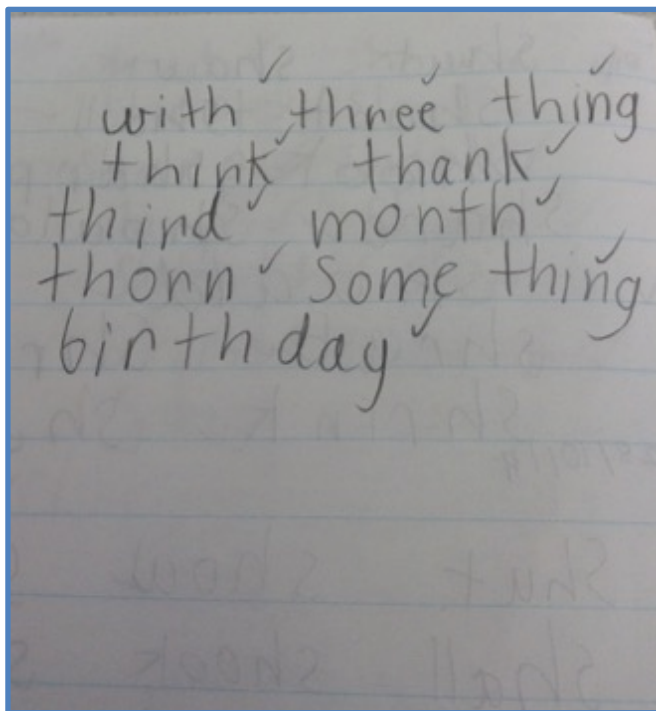 with three thing
think thank
third month
thorn some thing
birthday